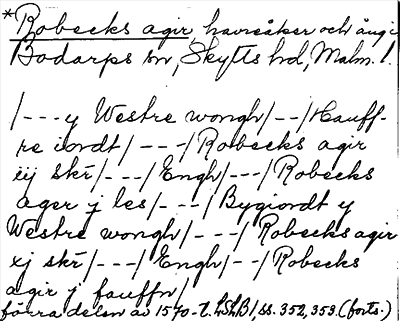 *Robecks agir, havresåker och äng i
Bodarps sn, Skytts hd, Malm. l.
/---y Westre wongh/--/Hauff-
re iordt/---/Robecks agir
iij skr/---/Engh/---/Robecks
ager j les/---/Bygiordt y
Westre wongh/---/Robecks agir
xj skr/---/Engh/--/Robecks
agir j fauffn/
förra delen av 1570-t. LSkB1, ss. 352, 353. (forts.)